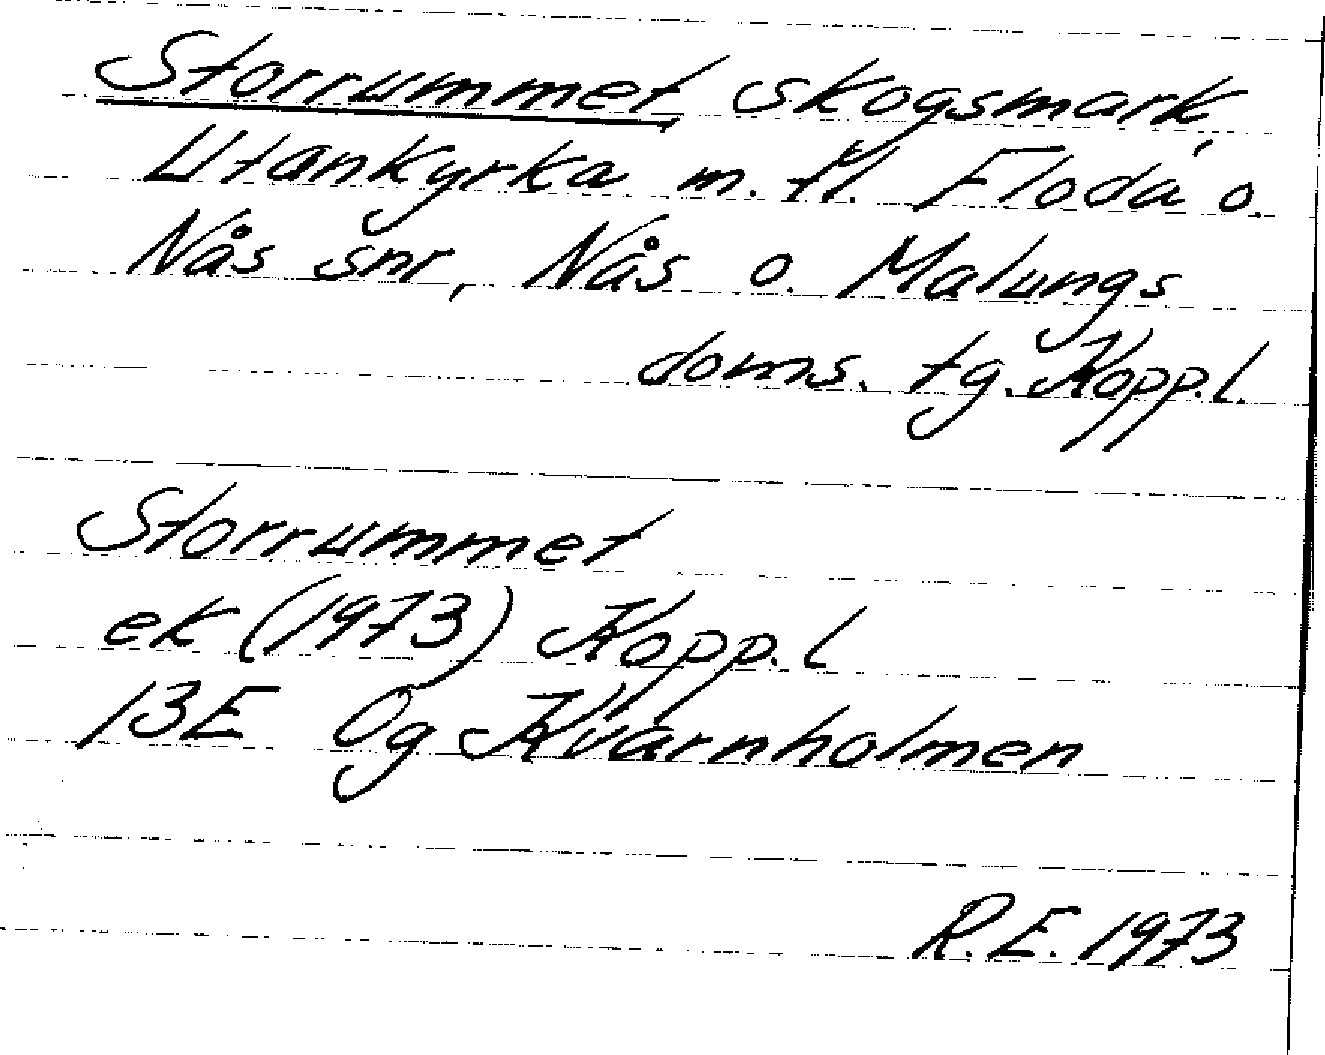 Storrummet skogsmark,
Utankyrka m. fl. Floda o.
Nås snr, Nås o. Malungs
doms. tg. Kopp.l.
Storrummet
ek (1973) Kopp.l
13E 0g Kvarnholmen
R.E. 1973